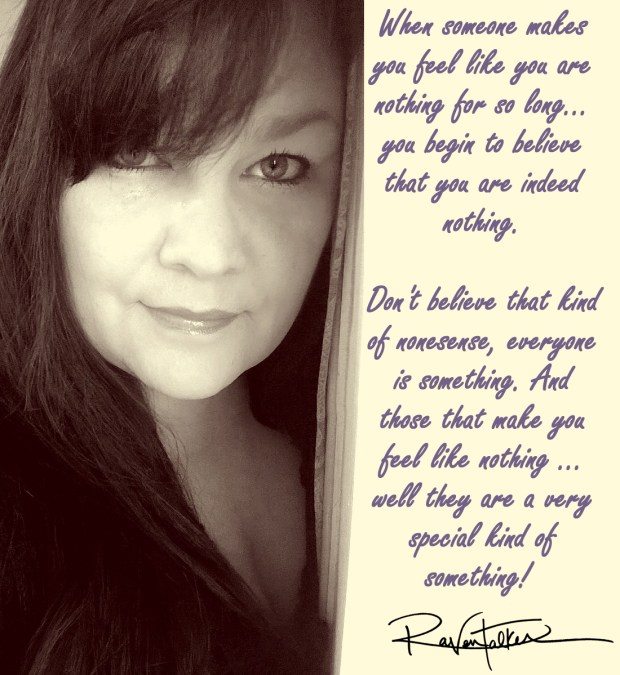 When someone makes
you feel like you are
nothing for so long...
you begin to believe
that you are indeed
nothing.
Don't believe that kind
of nonesense, everyone
is something. And
those that make you
feel like nothing ...
well they are a very
special kind of
something!
RavenTalker